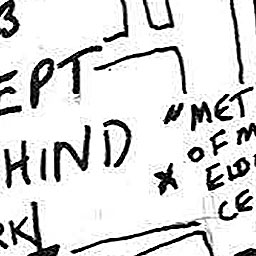 3
EPT
HIND
"MET
OF M
* ELD
CE
RK